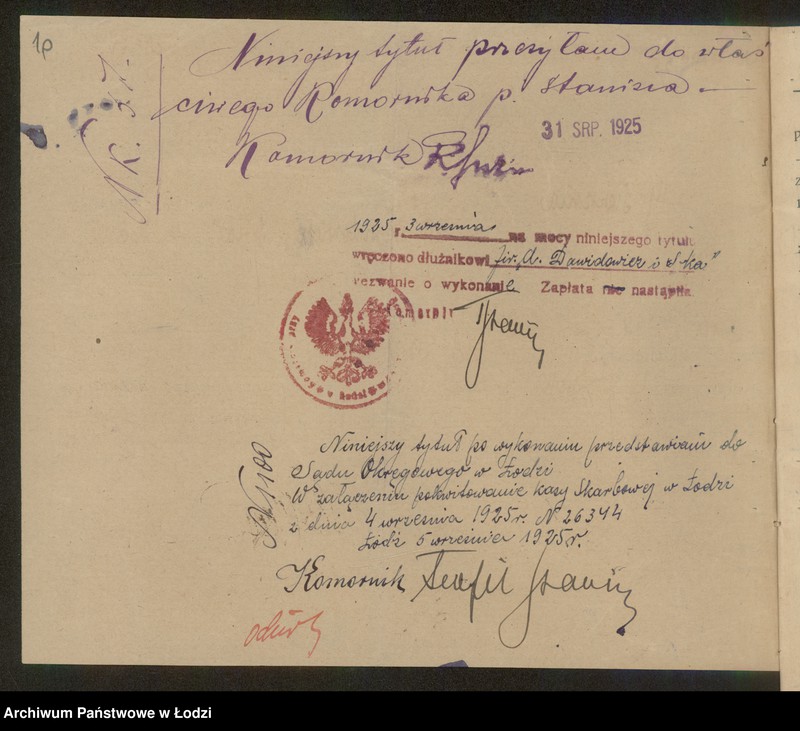 1p
Niniejszy tytuł przesyłam do właś
ciwego Komornika p. Stanisza —
31 SRP. 1925
Komornik
N. K. 37.
1925 r. 3 września na mocy niniejszego tytułu
wręczono dłużnikowi fir. „A. Dawidowicz i S-ka"
wezwanie o wykonanie Zapłata nie nastąpiła
Komornik
Niniejszy tytuł po wykonaniu przedstawiam do
Sądu Okręgowego w Łodzi
W załączeniu pokwitowanie kasy Skarbowej w Łodzi
z dnia 4 września 1925 r. N 26344
Łódź 5 września 1925 r.
Komornik Teofil
Archiwum Państwowe w Łodzi